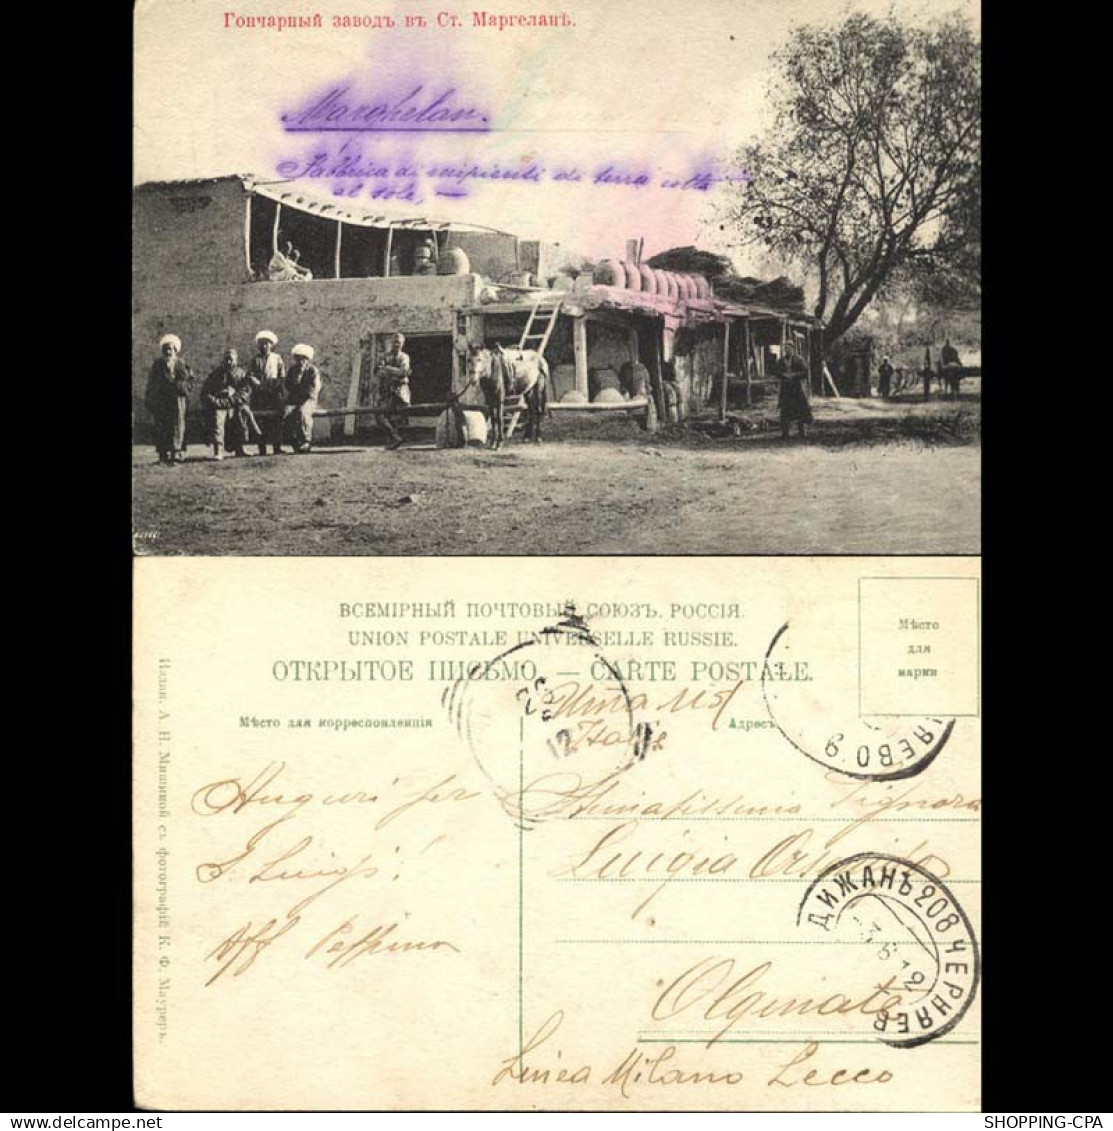 Гончарный заводъ въ Ст. Маргеланѣ.
Marghelan.
Fabbrica di recipienti di terra cotta
al sole, —
ВСЕМІРНЫЙ ПОЧТОВЫЙ СОЮЗЪ. РОССІЯ.
UNION POSTALE UNIVERSELLE RUSSIE.
ОТКРЫТОЕ ПИСЬМО. — CARTE POSTALE.
Мѣсто
для
марки
Мѣсто для корреспонденціи
Адресъ
Италія
Italie
12
ЯЕВО 9
Auguri per
S. Luigi!
Aff Peppino
Stimatissima Signora
Luigia
Olginate
Linea Milano Lecco
ДИЖАНЪ 208 ЧЕРНЯЕВ
Издан. А. Н. Мишиной съ фотографій К. Ф. Мауреръ.
SHOPPING-CPA